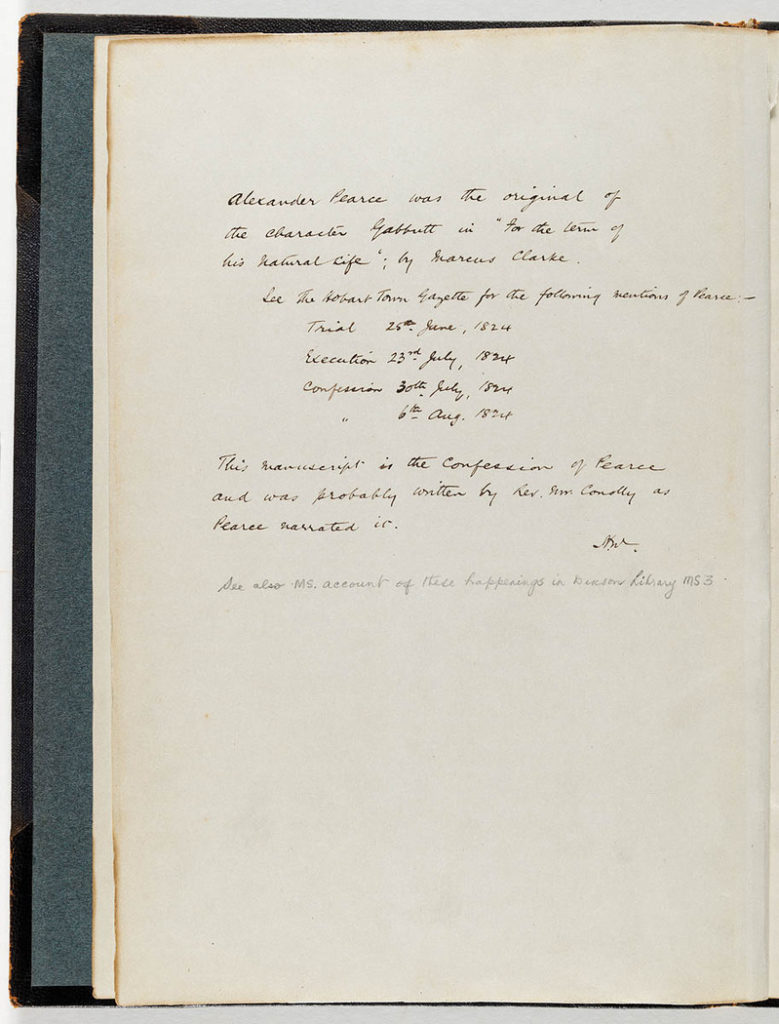 Alexander Pearce was the original of
the character Gabbett in "For the term of
his Natural Life"; by Marcus Clarke.
See The Hobart Town Gazette for the following mentions of Pearce:-
Trial 25th. June, 1824
Execution 23rd July, 1824
Confession 30th. July, 1824
" 6th Aug. 1824
This manuscript is the Confession of Pearce
and was probably written by Rev. Wm. Conolly as
Pearce narrated it.
See also MS. account of these happenings in Dixson Library MS 3